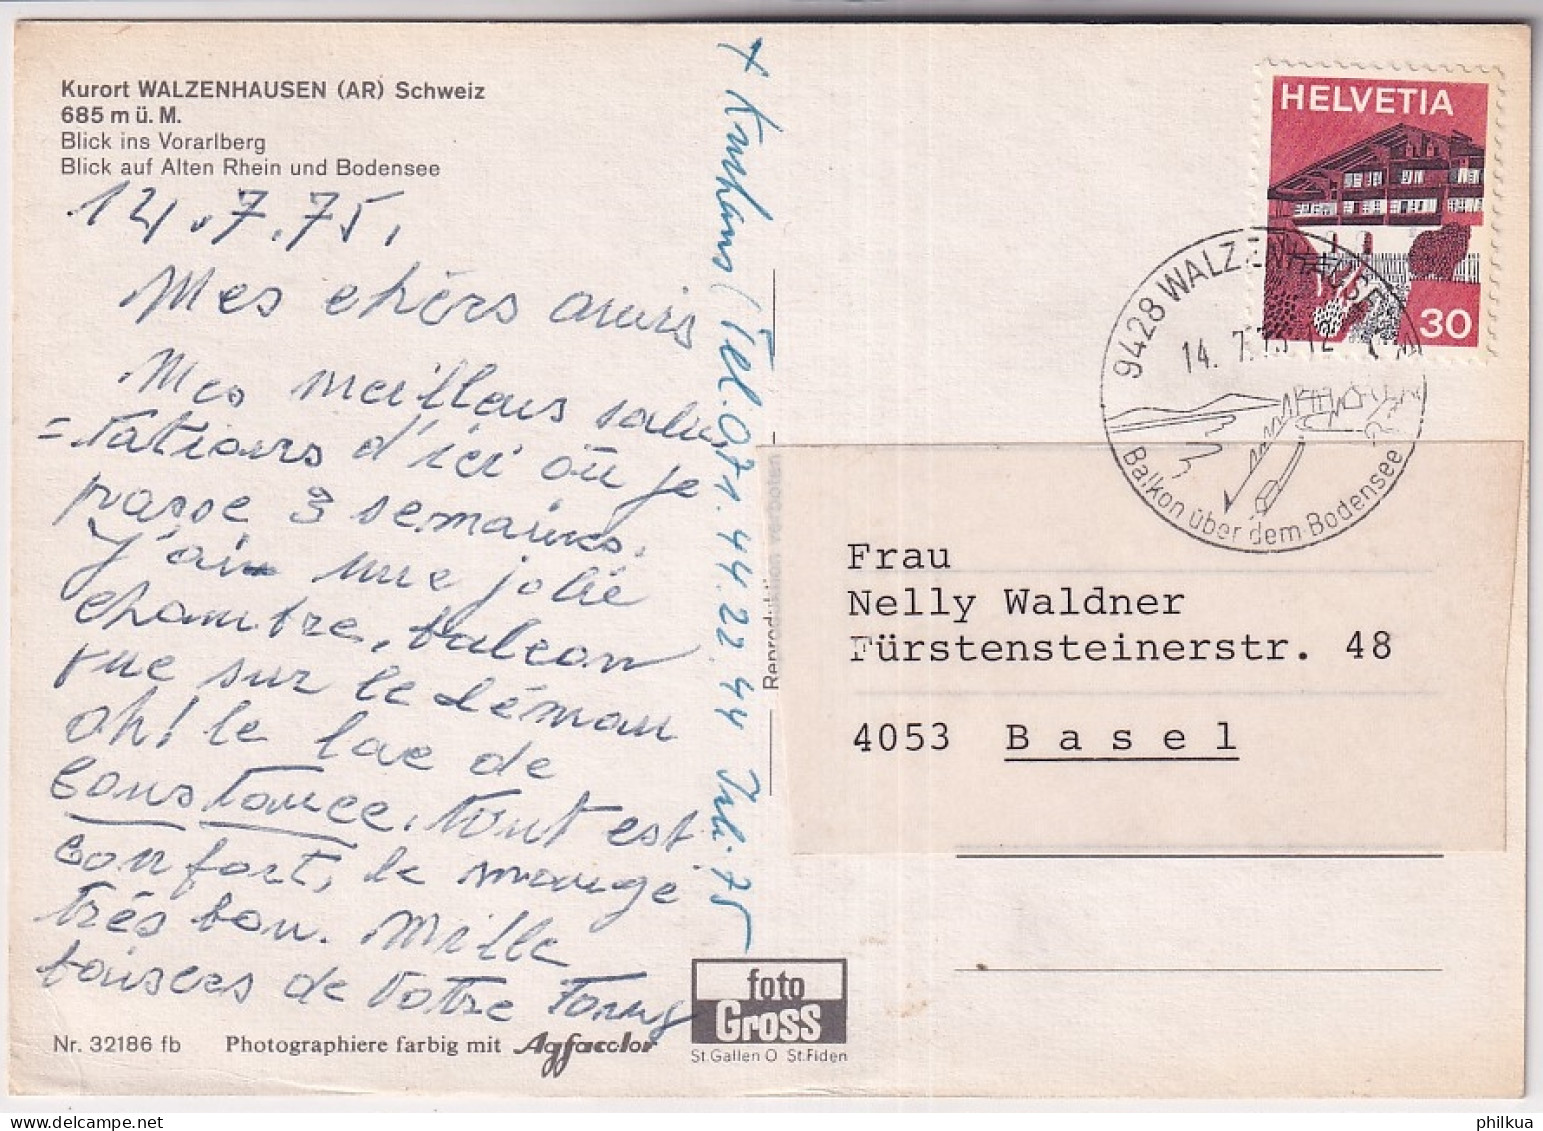 Kurort WALZENHAUSEN (AR) Schweiz
685 m ü. M.
Blick ins Vorarlberg
Blick auf Alten Rhein und Bodensee
14.7.75,
Mes chèrs amis
Mes meilleurs salu
=tations d'ici où je
passe 3 semaines.
J'ai une jolie
chambre, balcon
vue sur le Léman
oh! le lac de
Constance. Tout est
confort, le mangé
très bon. Mille
baisers de Votre
+ Kurhaus (Tel. 071. 44.22.44 Juli 75
Reproduktion verboten
HELVETIA
30
9428 WALZENHAUSEN
14. 7. 75 12
Balkon über dem Bodensee
Frau
Nelly Waldner
Fürstensteinerstr. 48
4053 Basel
foto
Gross
St.Gallen O St.Fiden
Nr. 32186 fb Photographiere farbig mit Agfacolor
philkua